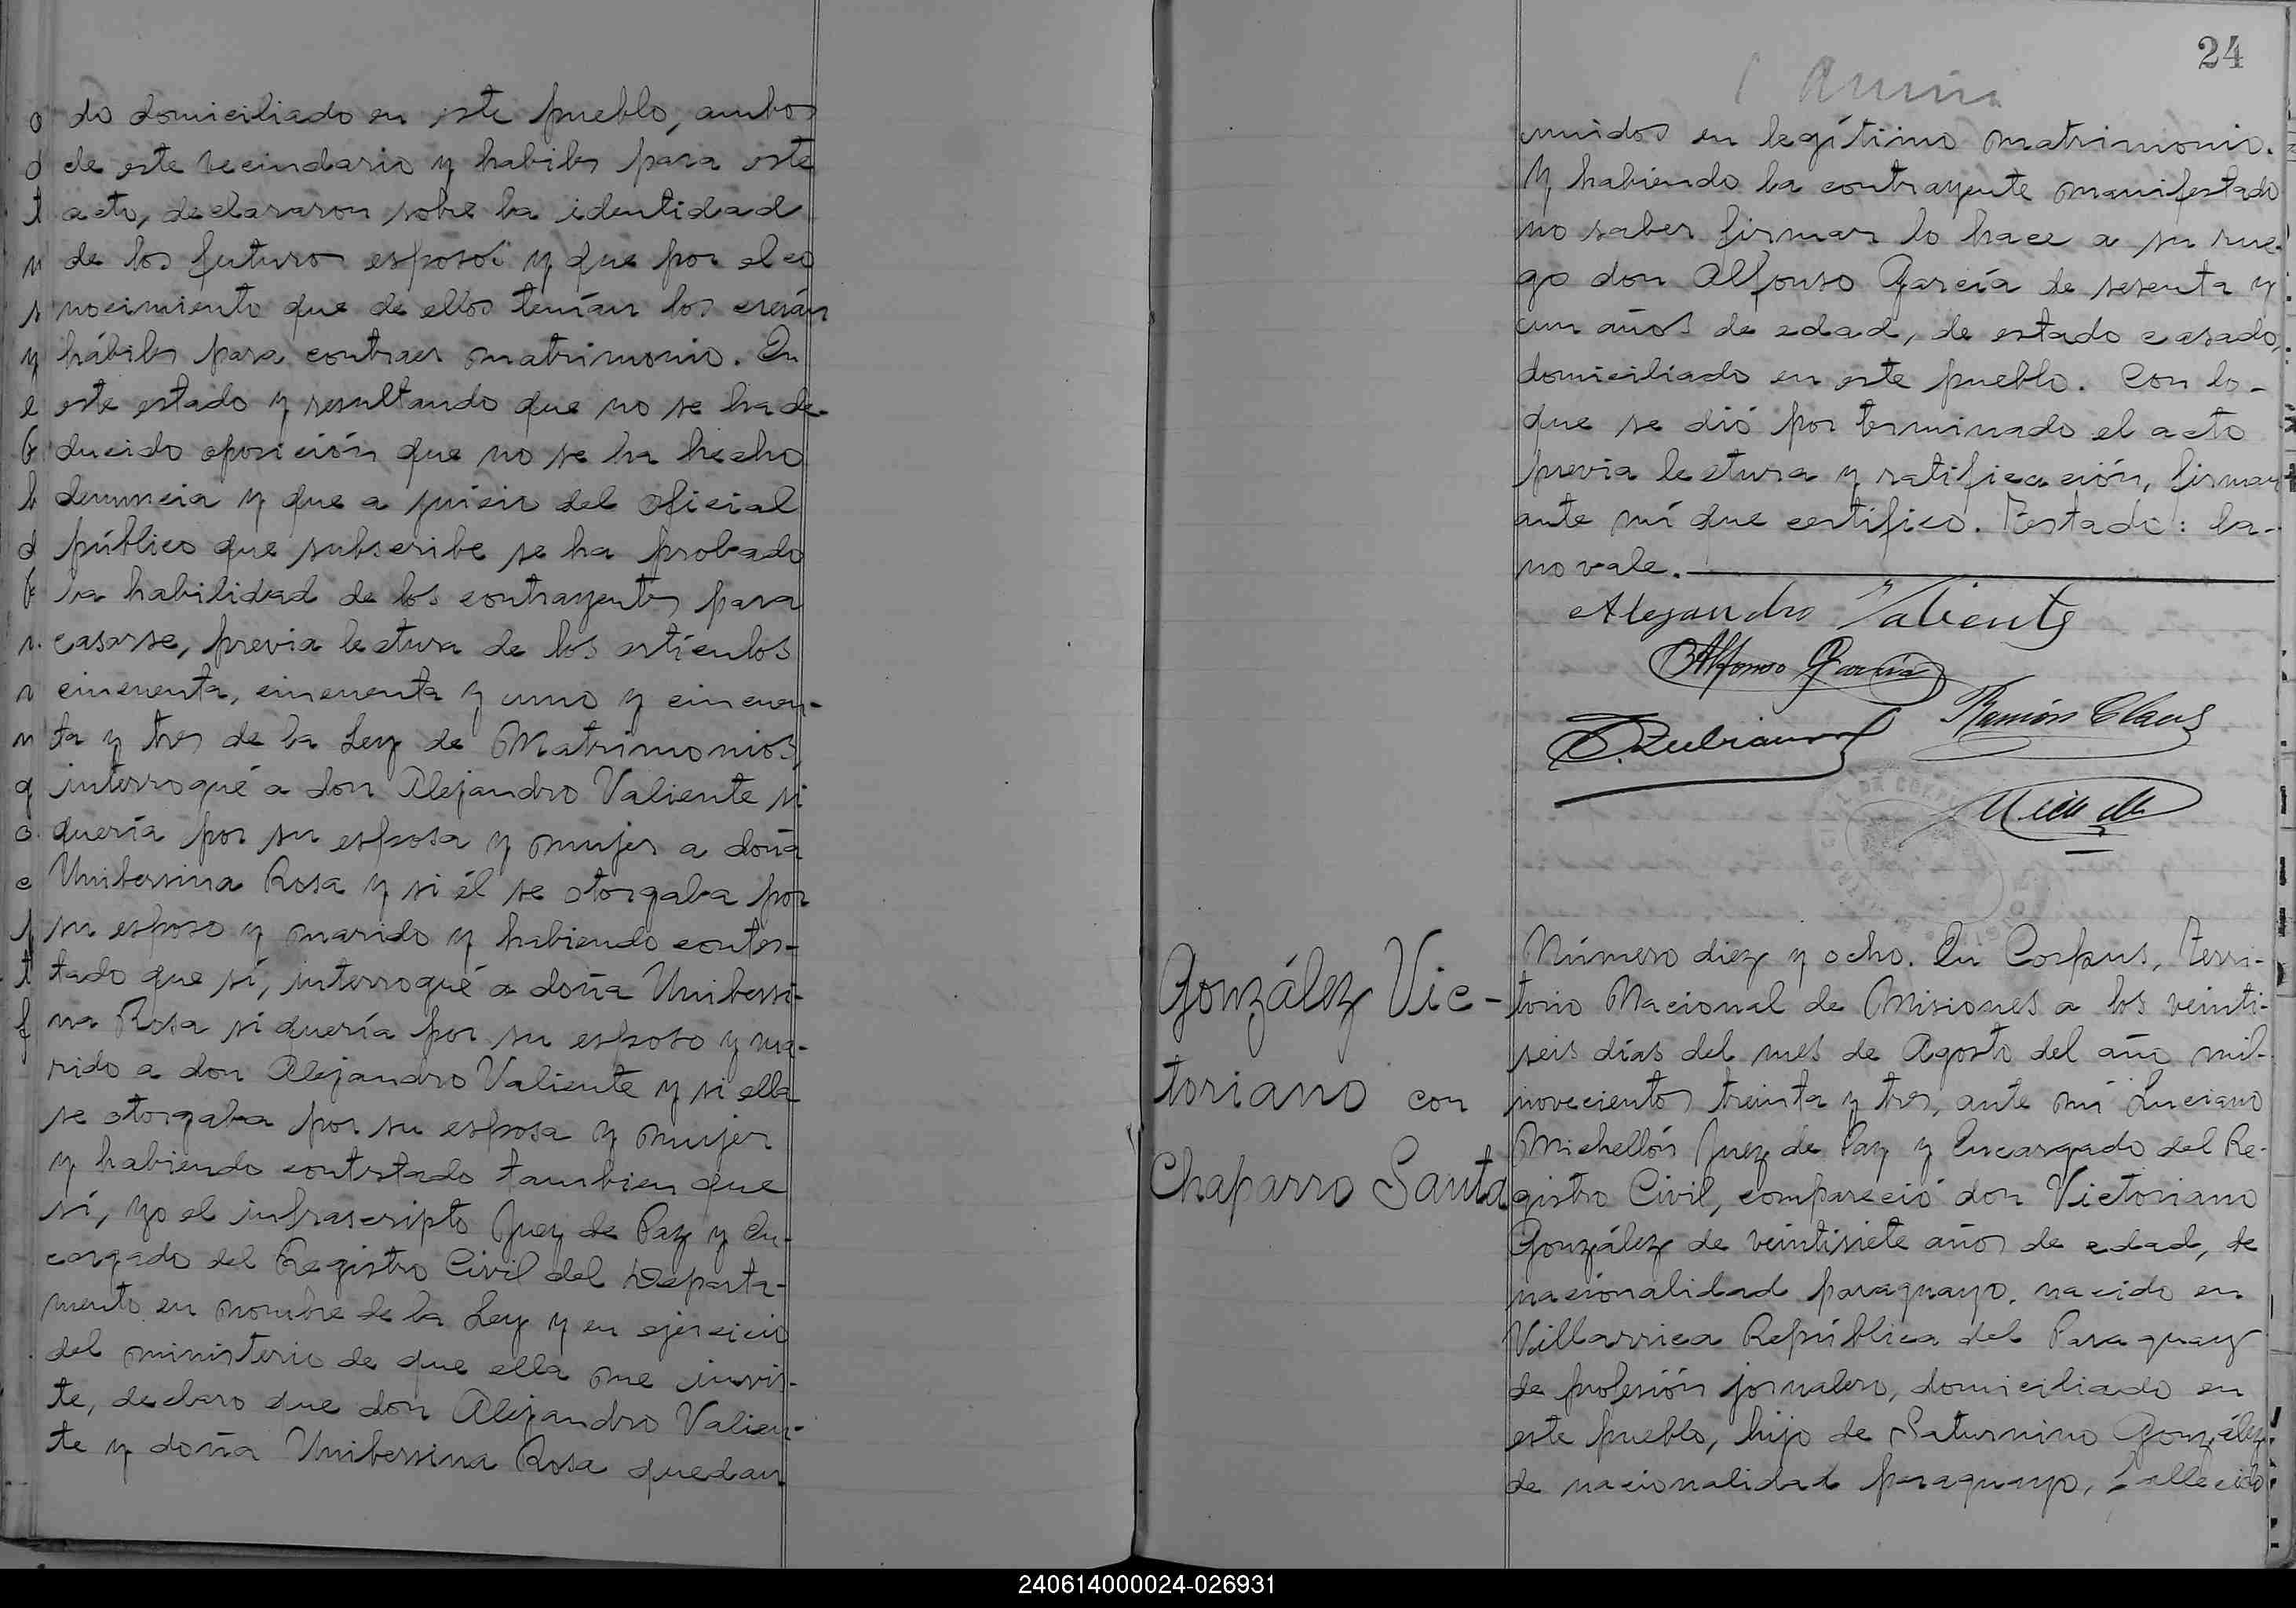 do domiciliado en este pueblo, ambos
de este vecindario y habiles para este
acto, declararon sobre la identidad
de los futuros esposos y que por el co
nocimiento que de ellos tenían los creían
hábiles para contraer matrimonio. En
este estado y resultando que no se ha de-
ducido oposición que no se ha hecho
denuncia y que a juicio del oficial
público que subscribe se ha probado
la habilidad de los contrayentes para
casarse, previa lectura de los artículos
cincuenta, cincuenta y uno y cincuen-
ta y tres de la Ley de Matrimonios,
interrogué a don Alejandro Valiente si
quería por su esposa y mujer a doña
Unibersina Rosa y si él se otorgaba por
su esposo y marido y habiendo contes-
tado que sí, interrogué a doña Unibersi-
na Rosa si quería por su esposo y ma-
rido a don Alejandro Valiente y si ella
se otorgaba por su esposa y mujer
y habiendo contestado tambien que
sí, yo el infrascripto Juez de Paz y En-
cargado del Registro Civil del Departa-
mento en nombre de la Ley y en ejercicio
del ministerio de que ella me invis-
te, declaro que don Alejandro Valien-
te y doña Unibersina Rosa quedan
24
unidos en legítimo matrimonio.
Y habiendo la contrayente manifestado
no saber firmar lo hace a su rue-
go don Alfonso García de sesenta y
un años de edad, de estado casado,
domiciliado en este pueblo. Con lo-
que se dió por terminado el acto
previa lectura y ratificación, firman
ante mí que certifico. Testado: la-
no vale.
Alejandro Valiente
Alfonso García
Ramón Claus
González Vic-
toriano con
Chaparro Santa
Número diez y ocho. En Corpus, Terri-
torio Nacional de Misiones a los veinti-
seis días del mes de Agosto del año mil-
novecientos treinta y tres, ante mí Luciano
Michellón Juez de Paz y Encargado del Re-
gistro Civil, compareció don Victoriano
González de veintisiete años de edad, de
nacionalidad paraguayo, nacido en
Villarrica República del Paraguay
de profesión jornalero, domiciliado en
este pueblo, hijo de Saturnino González
de nacionalidad paraguayo, fallecido
240614000024-026931